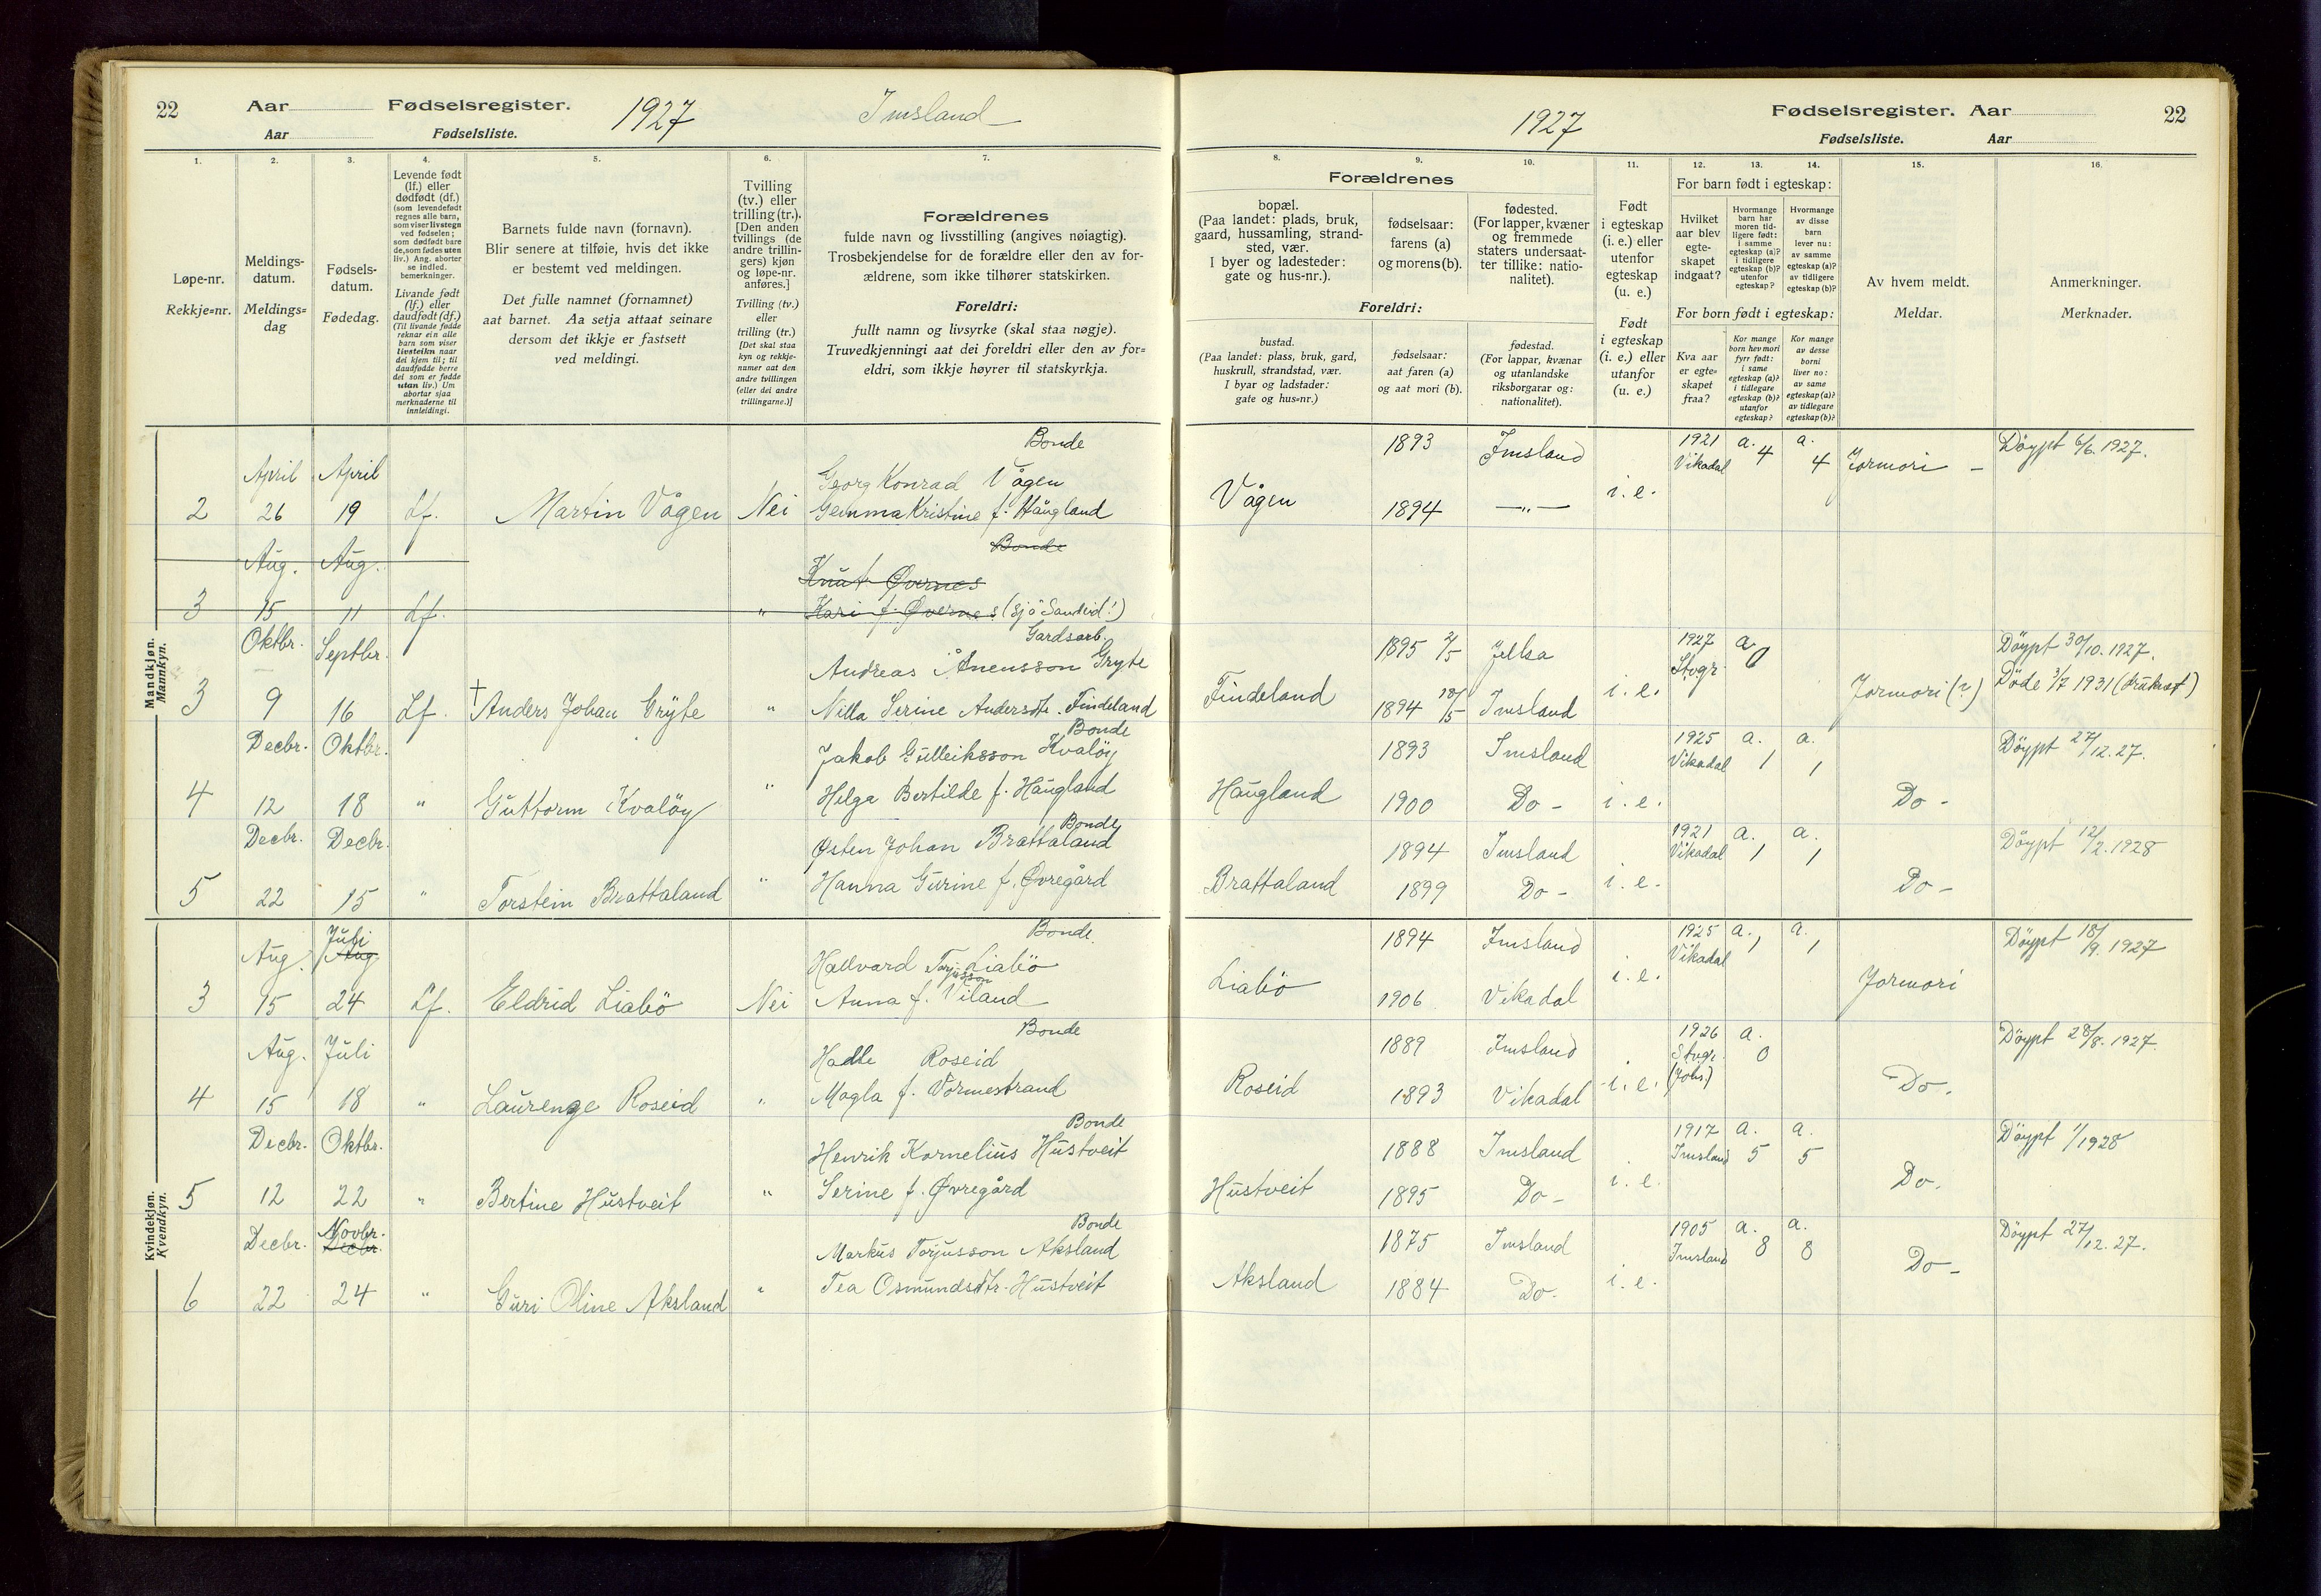 22 Aar Fødselsregister. 1927 Imsland
Aar Fødselsliste.
1927 Fødselsregister. Aar 22
Fødselsliste. Aar
1. 2. 3. 4. 5. 6. 7.
Løpe-nr.
Rekkje=nr.
Meldings-
datum.
Meldings=
dag
Fødsels-
datum.
Fødedag.
Levende født
(lf.) eller
dødfødt (df.)
(som levendefødt
regnes alle barn,
som viser livstegn
ved fødselen;
som dødfødt bare
de, som fødes uten
liv.) Ang. aborter
se indled.
bemerkninger.
Livande født
(lf.) eller
daudfødt (df.)
(Til livande fødde
reknar ein alle
barn som viser
livsteikn naar
dei kjem til; til
daudfødde berre
dei som er fødde
utan liv.) Um
abortar sjaa
merknaderne til
innleidingi.
Barnets fulde navn (fornavn).
Blir senere at tilføie, hvis det ikke
er bestemt ved meldingen.
Det fulle namnet (fornamnet)
aat barnet. Aa setja attaat seinare
dersom det ikkje er fastsett
ved meldingi.
Tvilling
(tv.) eller
trilling (tr.).
[Den anden
tvillings (de
andre trillin-
gers) kjøn
og løpe-nr.
anføres.]
Tvilling (tv.)
eller
trilling (tr.)
[Det skal staa
kyn og rekkje-
numer aat den
andre tvillingen
(eller dei andre
trillingarne.)]
Forældrenes
fulde navn og livsstilling (angives nøiagtig).
Trosbekjendelse for de forældre eller den av for-
ældrene, som ikke tilhører statskirken.
Foreldri:
fullt namn og livsyrke (skal staa nøgje).
Truvedkjenningi aat dei foreldri eller den av for=
eldri, som ikkje høyrer til statskyrkja.
8. 9. 10. 11. 12. 13. 14. 15. 16.
Forældrenes
bopæl.
(Paa landet: plads, bruk,
gaard, hussamling, strand-
sted, vær.
I byer og ladesteder:
gate og hus-nr.).
fødselsaar:
farens (a)
og morens (b).
fødested.
(For lapper, kvæner
og fremmede
staters undersaat-
ter tillike: natio-
nalitet).
Foreldri:
bustad.
(Paa landet: plass, bruk, gard,
huskrull, strandstad, vær.
I byar og ladstader:
gate og hus=nr.)
fødselsaar:
aat faren (a)
og aat mori (b).
fødestad.
(For lappar, kvænar
og utanlandske
riksborgarar og:
nationalitet).
Født
i egteskap
(i. e.) eller
utenfor
egteskap
(u. e.)
Født
i egteskap
(i. e.) eller
utanfor
(u. e.)
For barn født i egteskap:
Hvilket
aar blev
egte-
skapet
indgaat?
Hvormange
barn har
moren tid-
ligere født:
i samme
egteskap (a)?
i tidligere
egteskap (b)?
utenfor
egteskap?
Hvormange
av disse
barn
lever nu:
av samme
egteskap (a)?
av tidligere
egteskap (b)?
For born født i egteskap:
Kva aar
er egte=
skapet
fraa?
Kor mange
born hev mori
fyrr født:
i same
egteskap (a)?
i tidlegare
egteskap (b)?
utanfor
egteskap?
Kor mange
av desse
borni
liver no:
av same
egteskap (a)?
av tidlegare
egteskap (b)?
Av hvem meldt.
Meldar.
Anmerkninger.
Merknader.
Mandkjøn.
Mannkyn.
Bonde
April April Georg Konrad Vågen
2 26 19 Lf. Martin Vågen Nei Gemma Kristine f. Haugland
Vågen 1893 Imsland i. e. 1921 Vikadal a. 4 a. 4 Jormori – Döypt 6/6. 1927.
1894 —„—
Bonde
Aug. Aug. Knut Øvernes
3 15 11 Lf. „ Kari f. Øvernes (sjå Sandeid!)
Gardsarb.
Oktbr. Septbr. Andreas Ånensson Gryte
3 9 16 Lf. † Anders Johan Gryte „ Nilla Serine Andersdtr. Findeland
Findeland 1895 2/5 Jelsa i. e. 1927 Stvgr. a 0 Jormori (?) Döypt 30/10. 1927.
1894 Imsland Döde 3/7 1931
Bonde
Decbr. Oktbr. Jakob Gulleiksson Kvalöy
4 12 18 „ Guttorm Kvalöy „ Helga Bertilde f. Haugland
Haugland 1893 Imsland i. e. 1925 Vikadal a. 1 a. 1 Do – Döypt 27/12. 27.
1900 Do –
Bonde
Decbr. Decbr. Østen Johan Brattaland
5 22 15 „ Torstein Brattaland „ Hanna Gurine f. Øvregård
Brattaland 1894 Imsland i. e. 1921 Vikadal a. 1 a. 1 Do – Döypt 12/2. 1928
1899 Do –
Kvindekjøn.
Kvendkyn.
Bonde
Aug. Juli Aug Hallvard Torjusson Liabö
3 15 24 Lf. Eldrid Liabö Nei Anna f. Viland
Liabö 1894 Imsland i. e. 1925 Vikadal a. 1 a. 1 Jormori Döypt 18/9. 1927
1906 Vikadal
Bonde
Aug. Juli Hadle Roseid
4 15 18 „ Laurenge Roseid „ Magla f. Vormestrand
Roseid 1889 Imsland i. e. 1926 Stvgr. (Johs.) a. 0 Do. Döypt 28/8. 1927.
1893 Vikadal
Bonde
Decbr. Oktbr. Henrik Kornelius Hustveit
5 12 22 „ Bertine Hustveit „ Serine f. Øvregård
Hustveit 1888 Imsland i. e. 1917 Imsland a. 5 a. 5 Do. Döypt 1/1928
1895 Do –
Bonde
Decbr. Novbr. Decbr. Markus Torjusson Aksland
6 22 24 „ Guri Oline Aksland „ Tea Osmundsdtr. Hustveit
Aksland 1875 Imsland i. e. 1905 Imsland a. 8 a. 8 Do – Döypt 27/12. 27.
1884 Do.